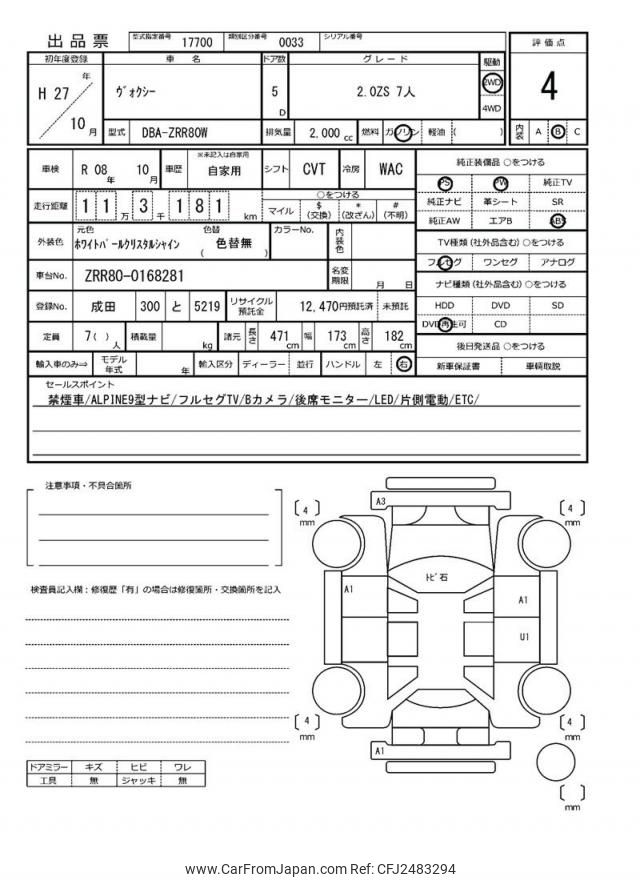 出品票 型式指定番号 17700 類別区分番号 0033 シリアル番号
評価点
4
内装 A B C
初年度登録 車名 ドア数 グレード 駆動
H 27 年 10 月
ヴォクシー
5 D
2.0ZS 7人
2WD
4WD
型式 DBA-ZRR80W 排気量 2,000 cc 燃料 ガソリン 軽油 ( )
車検 R 08 年 10 月 車歴 ※未記入は自家用 自家用 シフト CVT 冷房 WAC
走行距離 1 1 万 3 千 1 8 1 km
○をつける
マイル $ (交換) * (改ざん) # (不明)
外装色 元色 ホワイトパールクリスタルシャイン 色替 ( 色替無 ) カラーNo. 内装色
車台No. ZRR80-0168281 名変期限 月 日
登録No. 成田 300 と 5219 リサイクル預託金 12,470円預託済 未預託
定員 7( ) 人 積載量 kg 諸元 長さ 471 cm 幅 173 cm 高さ 182 cm
輸入車のみ⇒ モデル年式 年 輸入区分 ディーラー 並行 ハンドル 左 右
純正装備品 ○をつける
PS PW 純正TV
純正ナビ 革シート SR
純正AW エアB ABS
TV種類(社外品含む)○をつける
フルセグ ワンセグ アナログ
ナビ種類(社外品含む)○をつける
HDD DVD SD
DVD再生可 CD
後日発送品 ○をつける
新車保証書 車輌取説
セールスポイント
禁煙車/ALPINE9型ナビ/フルセグTV/Bカメラ/後席モニター/LED/片側電動/ETC/
注意事項・不具合箇所
検査員記入欄：修復歴「有」の場合は修復箇所・交換箇所を記入
ドアミラー キズ ヒビ ワレ
工具 無 ジャッキ 無
A3
[ 4 ] mm
[ 4 ] mm
トビ石
A1
A1
U1
[ 4 ] mm
[ 4 ] mm
A1
[ ] mm
www.CarFromJapan.com Ref: CFJ2483294